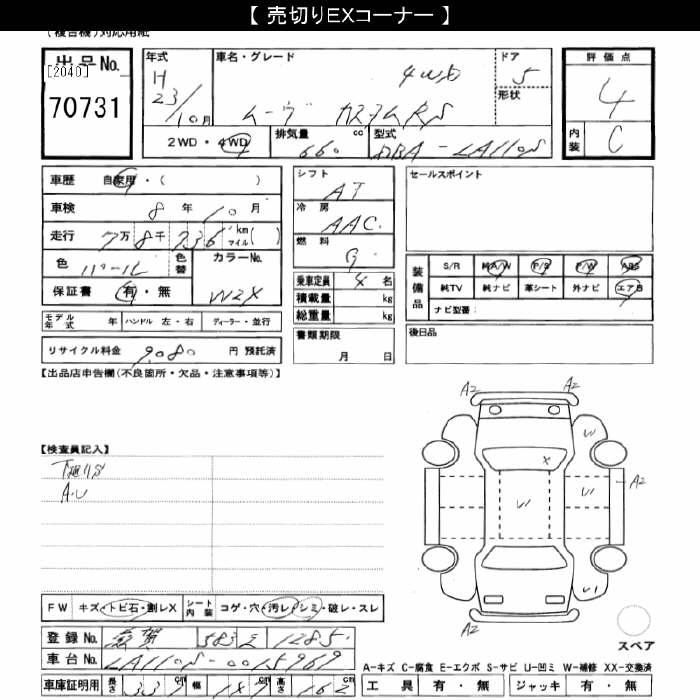 【 売切りEXコーナー 】
(複合機)対応用紙
出品No.
[2040]
70731
年式
H
23/10月
車名・グレード
4WD
ムーヴ カスタムRS
ドア
5
形状
評価点
4
内装
C
2WD・4WD
排気量
660 cc
型式
DBA-LA110S
車歴 自家用・( )
車検 8年10月
走行 7万8千236 km マイル( )
色 パール
色替
カラーNo.
W24
保証書 有・無
モデル年式 年 ハンドル 左・右 ディーラー・並行
リサイクル料金 9080 円 預託済
シフト
AT
冷房
AAC
燃料
G
乗車定員 4 名
積載量 kg
総重量 kg
書類期限
月 日
セールスポイント
装備品
S/R 純A/W P/S P/W ABS
純TV 純ナビ 革シート 外ナビ エアB
ナビ型番:
後日品
【出品店申告欄(不良箇所・欠品・注意事項等)】
【検査員記入】
A.U
A2 A2
W
X
W W A2
W1
A2
スペア
FW キズ・トビ石・割レX シート内装 コゲ・穴・汚レ・シミ・破レ・スレ
登録No. 滋賀 583 1285
車台No. LA110S-0015969
車庫証明用 長さ 339 cm 幅 147 cm 高さ 162 cm
A-キズ C-腐食 E-エクボ S-サビ U-凹ミ W-補修 XX-交換済
工具 有・無 ジャッキ 有・無